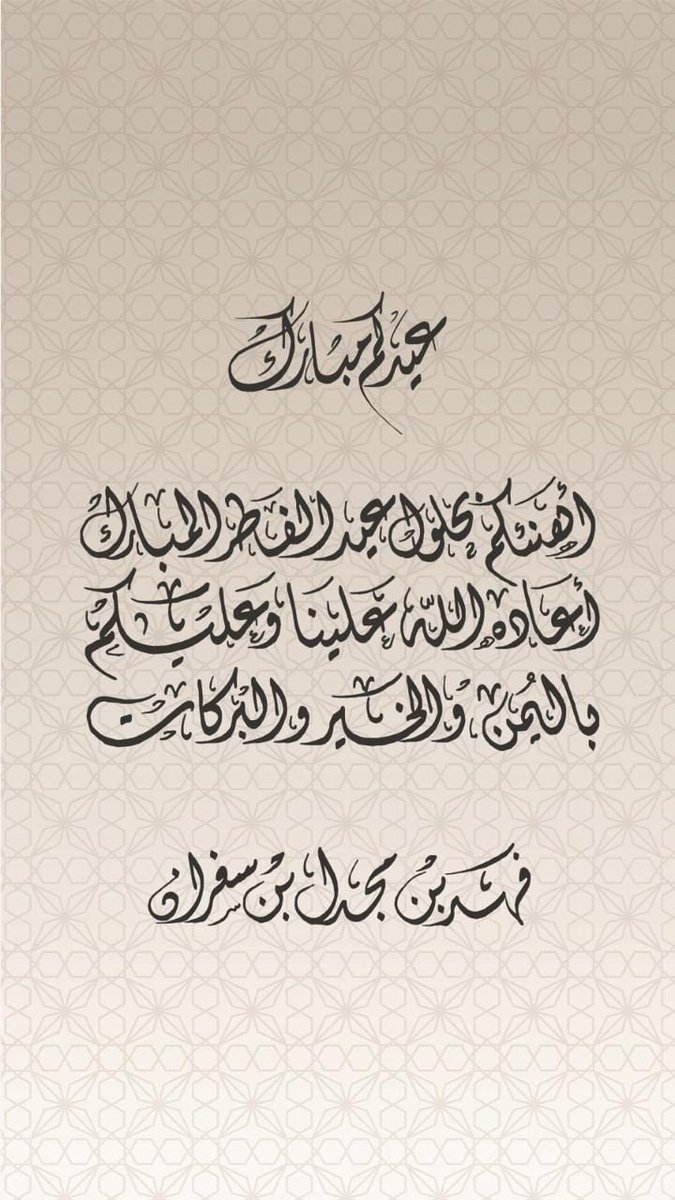 عيدكم مبارك
أهنئكم بحلول عيد الفطر المبارك
أعاده الله علينا وعليكم
باليُمن والخير والبركات
فهد بن مجدل بن سفران